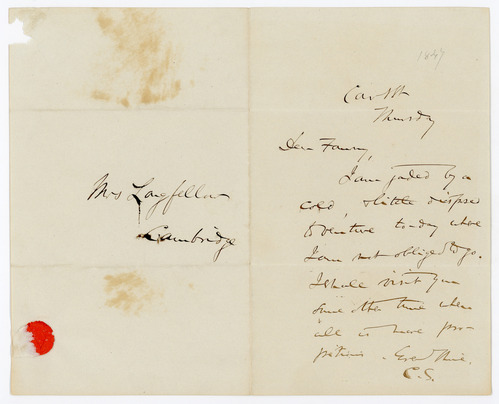 1847
Court St
Thursday
Mrs Longfellow
Cambridge
Dear Fanny,
I am jaded by a
cold, & little disposed
to venture to-day where
I am not obliged to go.
I shall visit you
some other time when
all is more pro-
pitious. Ever thine.
C.S.